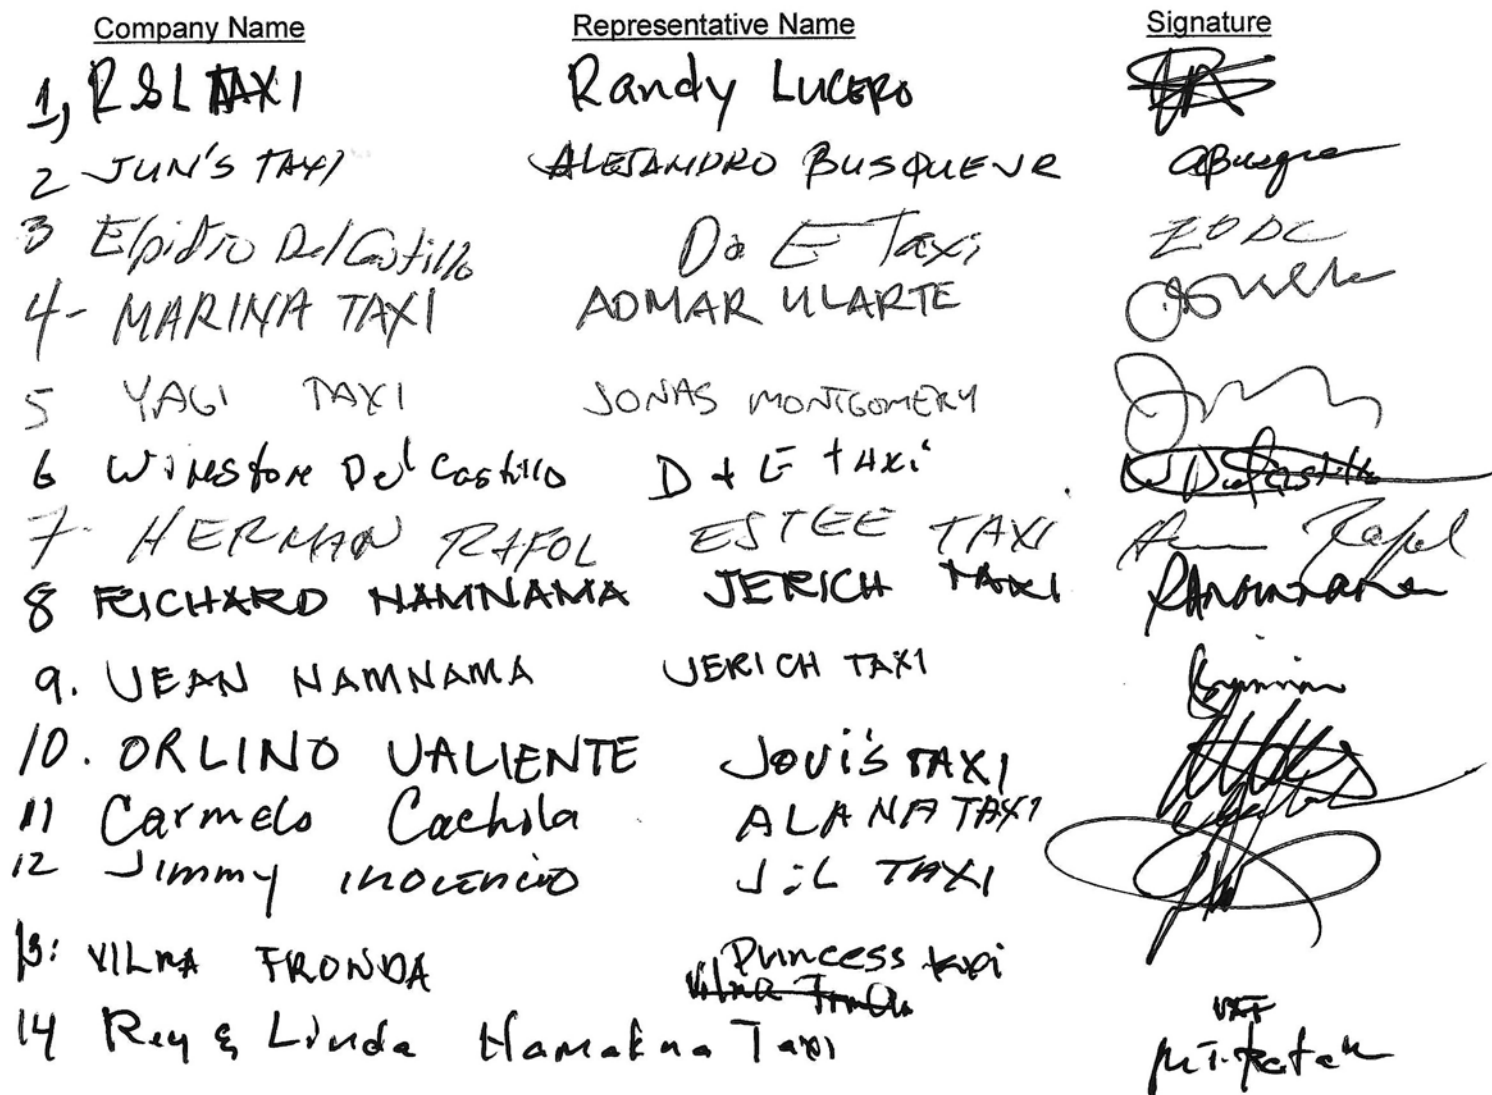 Company Name Representative Name Signature
1, RSL TAXI Randy LUCERO
2 JUN'S TAXI ALEJANDRO BUSQUENR
3 Elpidio Del Castillo D & E Taxi EODC
4- MARINA TAXI ADMAR ULARTE
5 YAGI TAXI JONAS MONTGOMERY
6 Winestone Del Castillo D + E taxi
7. HERMAN RAFOL ESTEE TAXI Rafol
8 RICHARD NAMNAMA JERICH TAXI
9. JEAN NAMNAMA JERICH TAXI
10. ORLINO VALIENTE JOVi'S TAXI
11 Carmelo Cachola ALANA TAXI
12 Jimmy INOCENCIO J:L TAXI
13: VILMA FRONDA Princess taxi
Vilma Fronda
14 Rey & Linda Hamakua Taxi